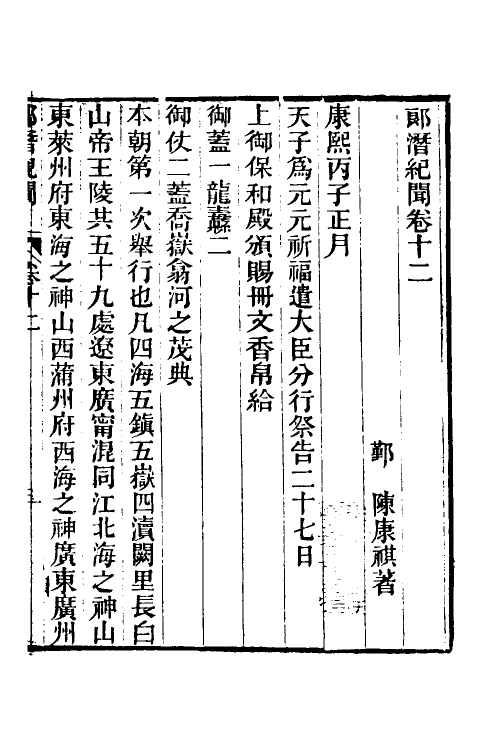 郞潛紀聞卷十二
鄞　陳康祺著
康熙丙子正月
天子爲元元祈福遣大臣分行祭告二十七日
上御保和殿頒賜冊文香帛給
御蓋一龍纛二
御仗二蓋喬嶽翕河之茂典
本朝第一次舉行也凡四海五鎭五嶽四瀆闕里長白
山帝王陵共五十九處遼東廣甯混同江北海之神山
東萊州府東海之神山西蒲州府西海之神廣東廣州
卷十二